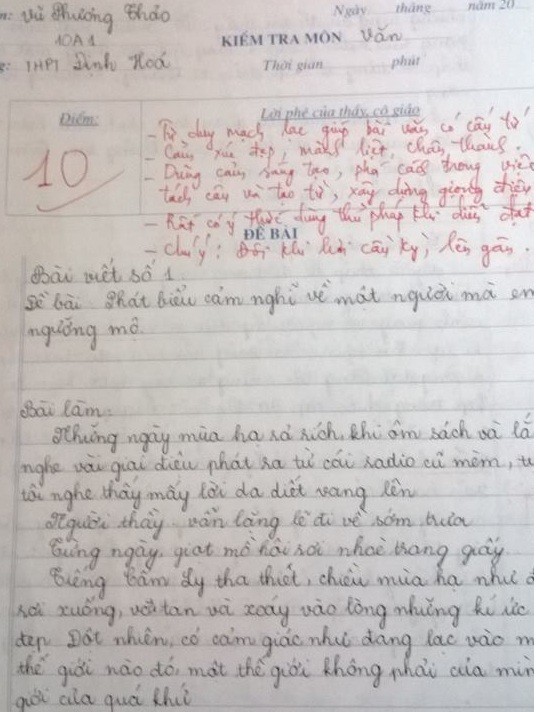 n: Vũ Phương Thảo
10A1
g: THPT Định Hoá
Ngày tháng năm 20
KIỂM TRA MÔN Văn
Thời gian phút
Điểm:
10
Lời phê của thầy, cô giáo
- Tư duy mạch lạc giúp bài văn có cấu tứ
- Cảm xúc đẹp, mãnh liệt, chân thành.
- Dùng cảm, sáng tạo, phá cách trong việc
tách câu và tạo từ, xây dựng giọng điệu
- Rất có ý thức dùng thủ pháp khi diễn đạt
ĐỀ BÀI
- Chú ý: Đôi khi hơi cầu kỳ, lên gân.
Bài viết số 1.
Đề bài: Phát biểu cảm nghĩ về một người mà em
ngưỡng mộ.
Bài làm:
Những ngày mùa hạ rả rích, khi ôm sách và lắ
nghe vài giai điệu phát ra từ cái radio cũ mèm, t
tôi nghe thấy mấy lời da diết vang lên
Người thầy vẫn lặng lẽ đi về sớm trưa
Từng ngày, giọt mồ hôi rơi nhoè trang giấy
Tiếng Cẩm Ly tha thiết, chiều mùa hạ như đ
rơi xuống, vỡ tan và xoáy vào lòng những kí ức
đẹp. Đột nhiên, có cảm giác như đang lạc vào m
thế giới nào đó, một thế giới không phải của mìn
giới của quá khứ